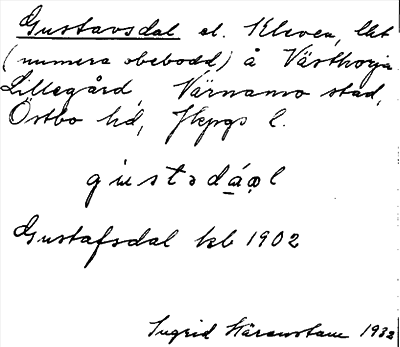 Gustavsdal el. Kleven, lht
(numera obebodd) å Västhorja
Lillegård, Värnamo stad,
Östbo hd, Jkpgs l.
gustədáɷl
Gustafsdal kb 1902
Ingrid Häranstam 1932